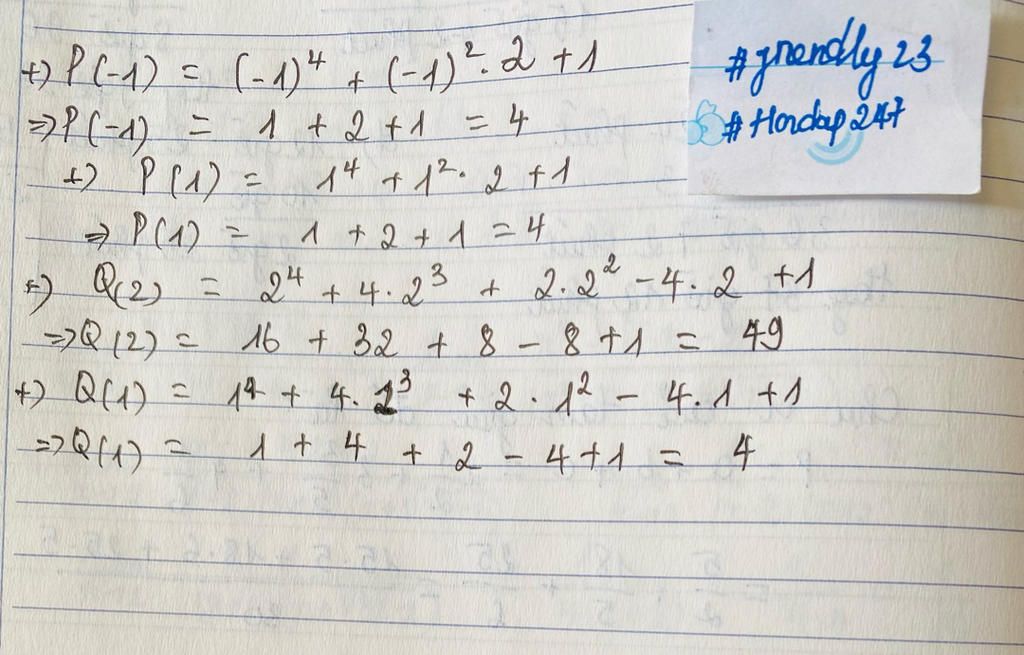 +) P(-1) = (-1)⁴ + (-1)².2 +1
=> P(-1) = 1 + 2 + 1 = 4
+) P(1) = 1⁴ + 1². 2 + 1
=> P(1) = 1 + 2 + 1 = 4
+) Q(2) = 2⁴ + 4.2³ + 2.2² - 4.2 + 1
=> Q(2) = 16 + 32 + 8 - 8 + 1 = 49
+) Q(1) = 1⁴ + 4.1³ + 2.1² - 4.1 + 1
=> Q(1) = 1 + 4 + 2 - 4 + 1 = 4
#friendly23
#Hoidap247